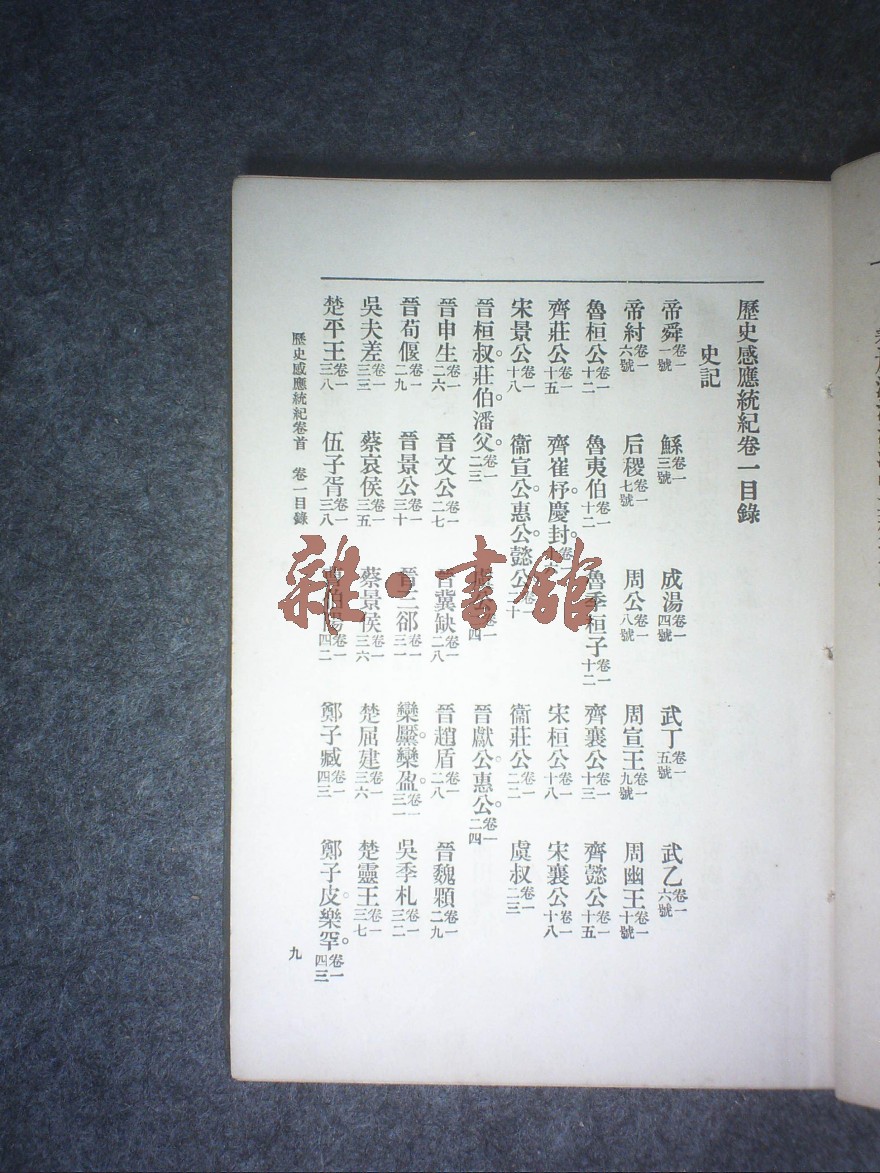 歷史感應統紀卷一目錄
史記
帝舜卷一一號 鯀卷一三號 成湯卷一四號 武丁卷一五號 武乙卷一六號
帝紂卷一六號 后稷卷一七號 周公卷一八號 周宣王卷一九號 周幽王卷一十號
魯桓公卷一十二 魯夷伯卷一十二 魯季桓子卷一十二 齊襄公卷一十三 齊懿公卷一十五
齊莊公卷一十五 齊崔杼。慶封。卷一 宋桓公卷一十八 宋襄公卷一十八
宋景公卷一十八 衞宣公。惠公。懿公 二十 衞莊公卷一二二 虞叔卷一二三
晉桓叔。莊伯。潘父。卷一二三 卷一 四 晉獻公。惠公。卷一二四
晉申生卷一二六 晉文公卷一二七 晉冀缺卷一二八 晉趙盾卷一二八 晉魏顆卷一二九
晉荀偃卷一二九 晉景公卷一三十 晉三郤卷一三一 欒黶。欒盈。卷一三一 吳季札卷一三二
吳夫差卷一三三 蔡哀侯卷一三五 蔡景侯卷一三六 楚屈建卷一三六 楚靈王卷一三七
楚平王卷一三八 伍子胥卷一三八 曹伯陽卷一四二 鄭子臧卷一四三 鄭子皮。樂罕。卷一四三
歷史感應統紀卷首 卷一目錄 九
雜·書館